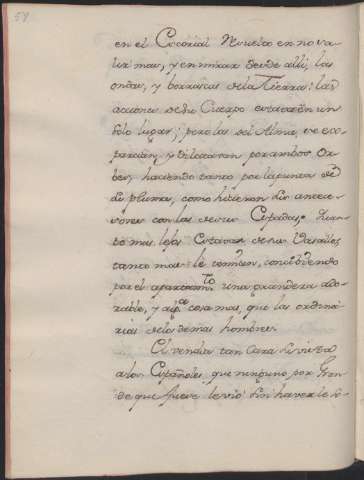 58
en el Escorial Revuelto en no va-
ler mas, y en mirar desde alli, las
ondas, y borrascas dela Tierra: las
acciones de su Cuerpo estaban en un
solo lugar; pero las del Alma, se es-
parcian, y dilataban por ambos Or-
bes, haciendo tanto por la punta de
su pluma, como hicieron sus antece-
sores con las de sus Espadas. Quan-
to mas lejos Estaban de sus Vasallos
tanto mas le temblan, concibiendo
por el apartamto. una grandeza ado-
rable, y algo cosa mas, que las ordina-
rias delos demas hombres.
El vendia tan cara su vista
a los Españoles, que ninguno por Gran-
de que fuese le vió sin haverle so-